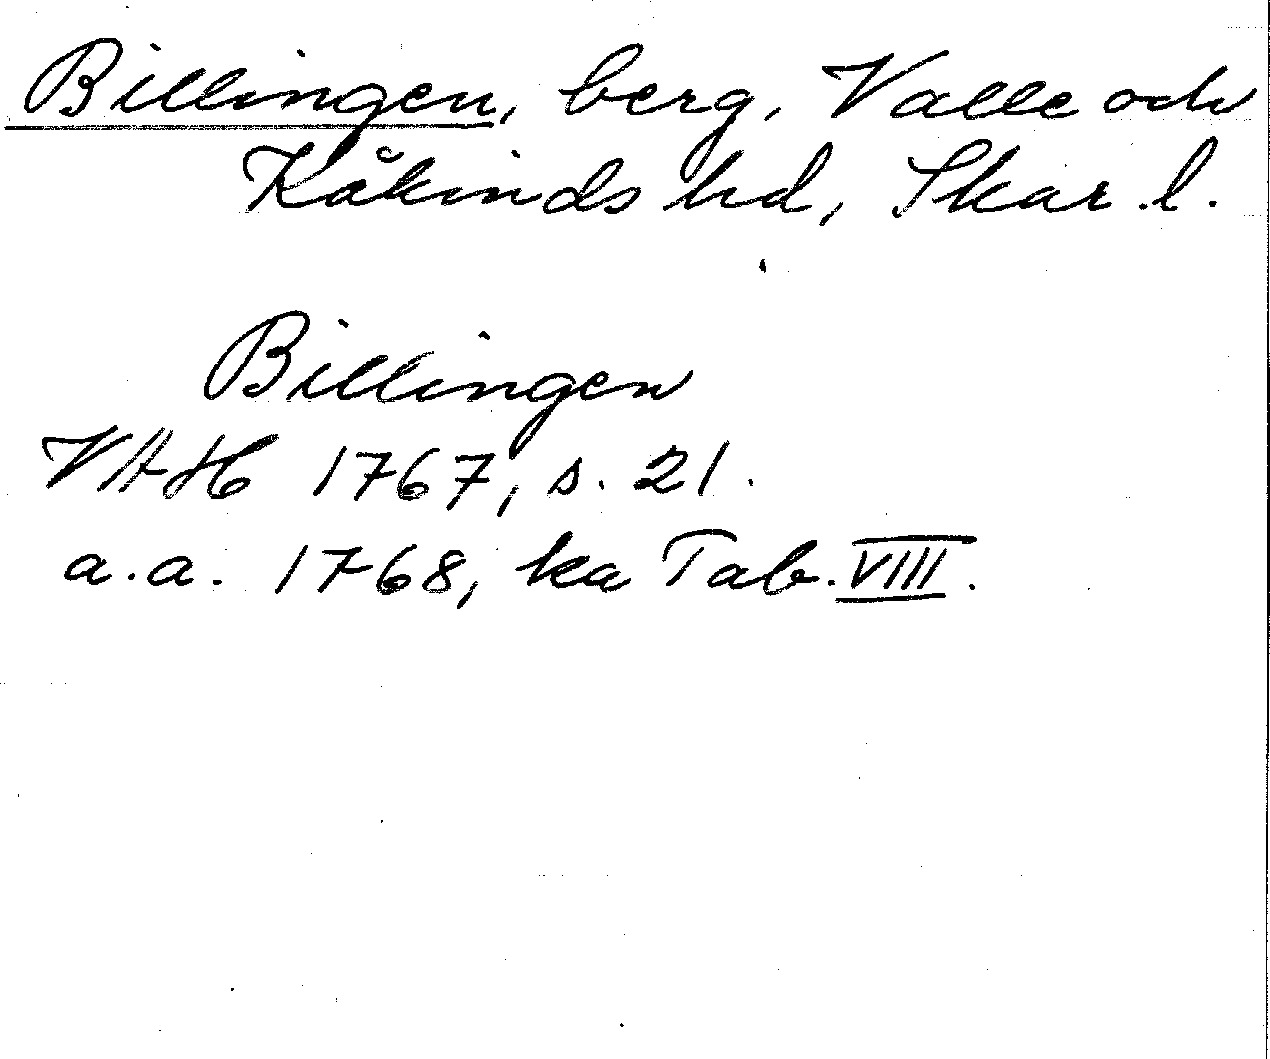 Billingen, berg, Valle och
Kåkinds hd, Skar. l.
Billingen
VAH 1767, s. 21.
a.a. 1768, ka Tab. VIII.